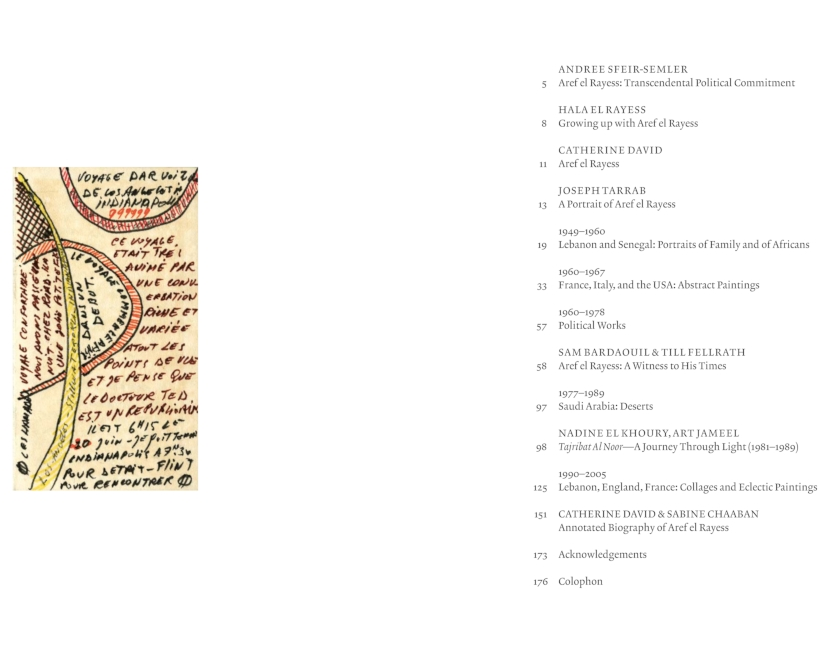 VOYAGE PAR
DE LOS ANGELES A
INDIANAPOLIS
CE VOYAGE
ETAIT TRES
ANIMÉ PAR
UNE CONV
ERSATION
RICHE ET
VARIÉE
SURTOUT LES
POINTS DE VUE
ET JE PENSE QUE
LE DOCTEUR TED
EST UN REPUBLICAIN
IL EST 6H15 LE
20 JUIN - JE QUITTERAI
INDIANAPOLIS A 7H30
POUR DETROIT - FLINT
POUR RENCONTRER
LE VOYAGE COMMENCE
DANS UN
DEBUT.
VOYAGE CONFORTABLE
NOUS AVONS PASSÉ UNE
NUIT CHEZ
LOS ANGELES -
ANDREE SFEIR-SEMLER
5 Aref el Rayess: Transcendental Political Commitment
HALA EL RAYESS
8 Growing up with Aref el Rayess
CATHERINE DAVID
11 Aref el Rayess
JOSEPH TARRAB
13 A Portrait of Aref el Rayess
1949–1960
19 Lebanon and Senegal: Portraits of Family and of Africans
1960–1967
33 France, Italy, and the USA: Abstract Paintings
1960–1978
57 Political Works
SAM BARDAOUIL & TILL FELLRATH
58 Aref el Rayess: A Witness to His Times
1977–1989
97 Saudi Arabia: Deserts
NADINE EL KHOURY, ART JAMEEL
98 Tajribat Al Noor—A Journey Through Light (1981–1989)
1990–2005
125 Lebanon, England, France: Collages and Eclectic Paintings
151 CATHERINE DAVID & SABINE CHAABAN
Annotated Biography of Aref el Rayess
173 Acknowledgements
176 Colophon